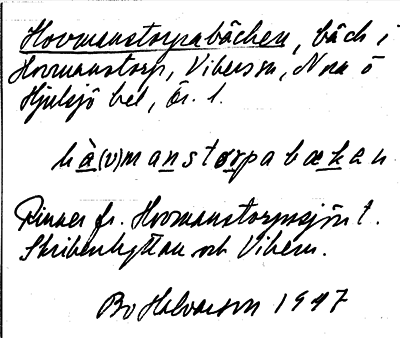 Hovmanstorpabäcken, bäck i
Hovmanstorp, Vikersv., Nora ö
Hjulsjö bel, Ör. l.
hà(v)manstorpabækan
Rinner fr. Hovmanstorpssjön t.
Skrikarhyttan och Vikern.
Bo Halvarson 1947